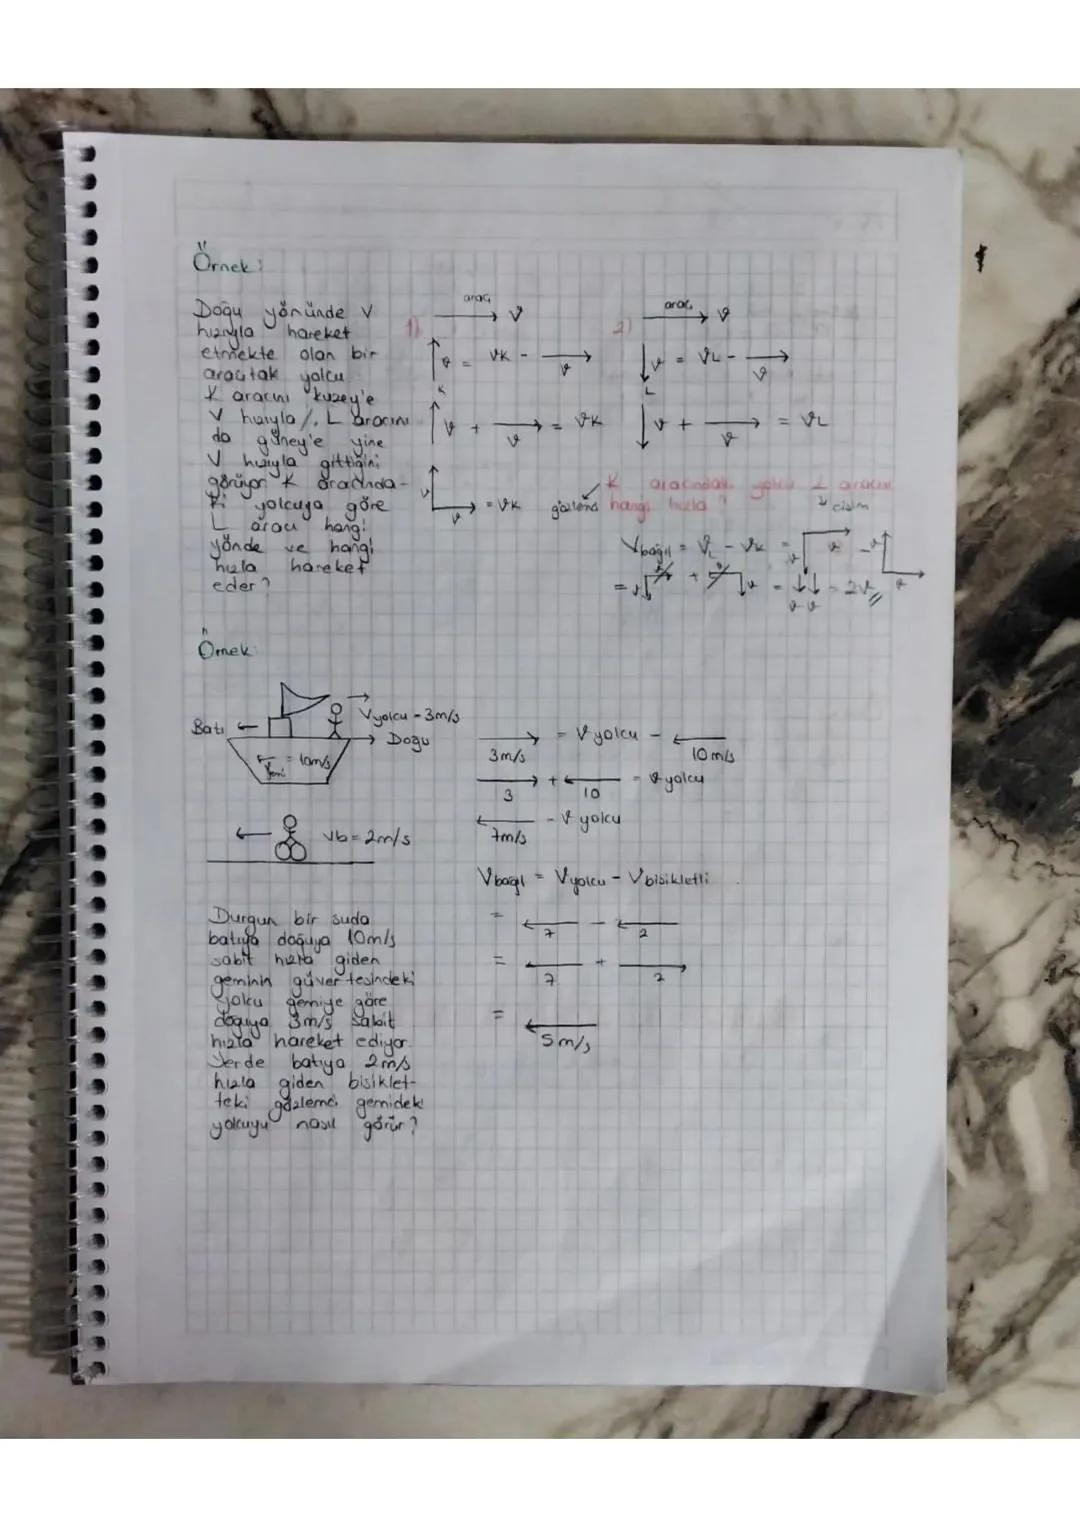 Örnek:
Doğu yönünde V
hızıyla hareket
etmekte olan bir
araçtak yolcu
K aracını kuzey'e
V hızıyla, L aracını
da güney'e yine
V hızıyla gittiğini
görüyor K aracında-
ki yolcuya göre
L aracı hangi
yönde ve hangi
hızla hareket
eder?
1)
araç
V
K
V = VK - V
V + V = VK
V
V = VK
2)
araç
V
L
V = VL - V
V + V = VL
K aracındaki yolcu L aracını
gözlemci hangi hızla?
cisim
Vbağıl = VL - VK = V V - V V
= V V + V V = V V = 2V
Örnek:
Batı
Vyolcu = 3m/s
Doğu
Vgemi = 10m/s
Vb = 2m/s
3m/s = Vyolcu - 10m/s
3 + 10 = Vyolcu
7m/s - Vyolcu
Vbağıl = Vyolcu - Vbisikletli
= 7 - 2
= 7 + 2
= 5m/s
Durgun bir suda
batıya doğuya 10m/s
sabit hızla giden
geminin güvertesindeki
yolcu gemiye göre
doğuya 3m/s sabit
hızla hareket ediyor.
Yerde batıya 2m/s
hızla giden bisiklet-
teki gözlemci gemideki
yolcuyu nasıl görür?